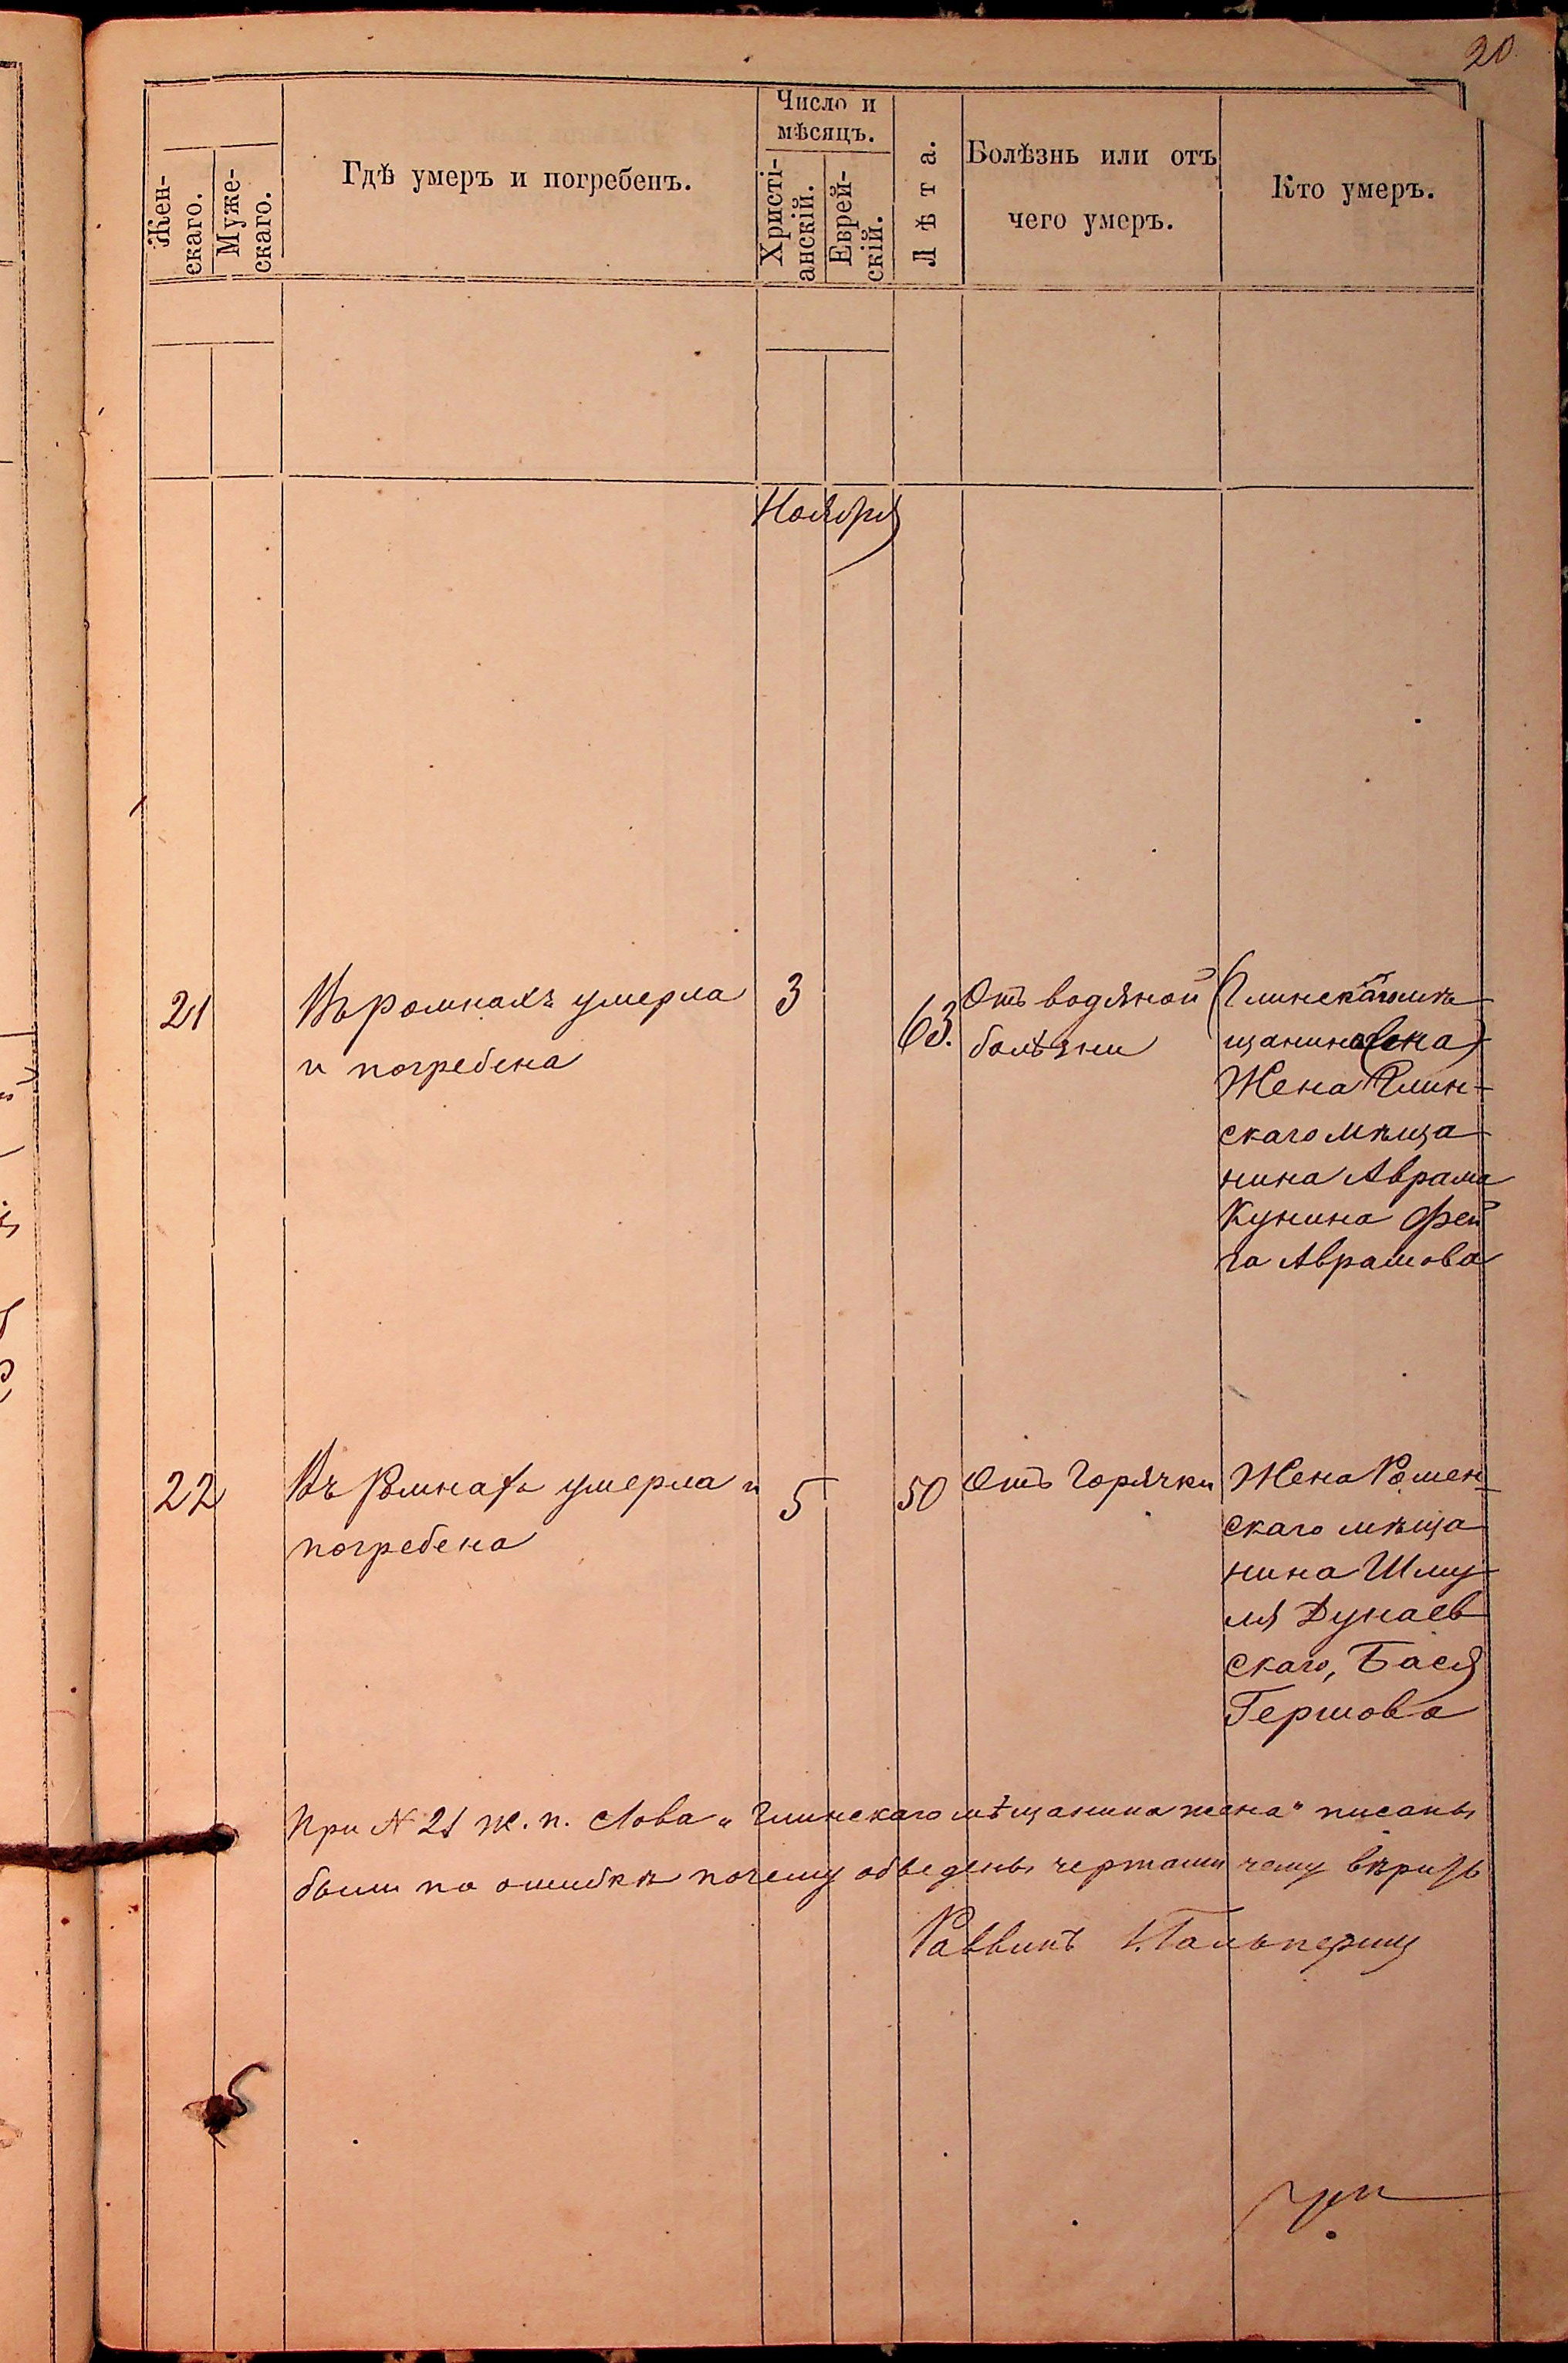 20
Жен-
скаго.
Муже-
скаго.
Гдѣ умеръ и погребенъ.
Число и
мѣсяцъ.
Христі-
анскій.
Еврей-
скій.
Лѣта.
Болѣзнь или отъ
чего умеръ.
Кто умеръ.
Ноября
21
Въ Ромнахъ умерла
и погребена
3
63.
Отъ водяной
болѣзни
(Глинскаго мѣ
щанина жена)
Жена Глин-
скаго мѣща
нина Аврама
Кунина Фей
га Аврамова
22
Въ Ромнахъ умерла и
погребена
5
50
Отъ горячки
Жена Ромен-
скаго мѣща
нина Шму-
ля Дунаев
скаго, Бася
Гершова
При № 21 ж. п. слова „Глинскаго мѣщанина жена" писаны
были по ошибкѣ почему обведены чертами чему вѣрить
Раввинъ Гальперинъ